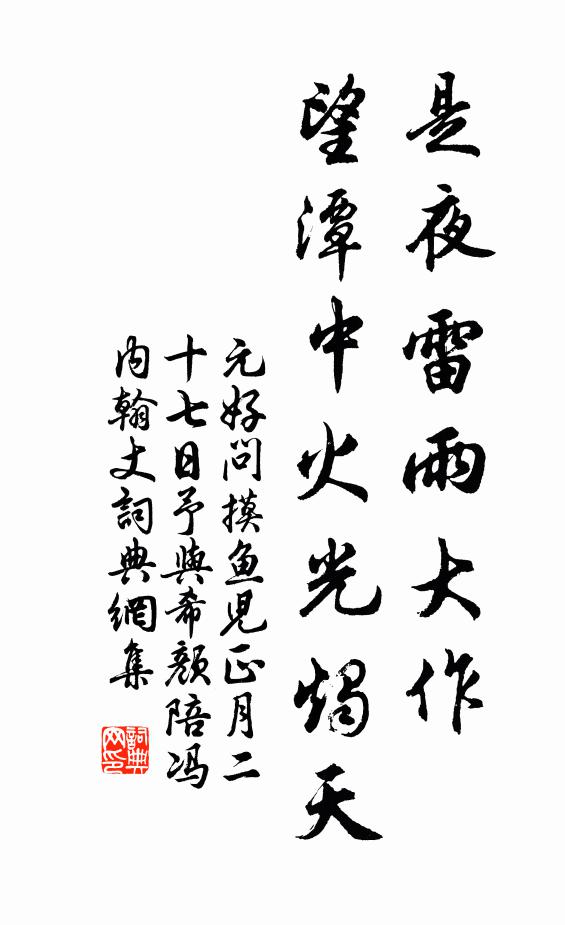 是夜雷雨大作
望潭中火光燭天
元好问摸鱼児正月二
十七日予與希颜陪冯
内翰丈詞典網集
詞典
网印